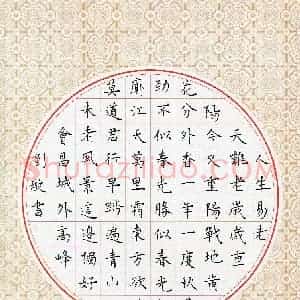 人生易老
天難老歲歲重
陽今又重陽戰地黃
花分外香一年一度秋
勁不似春光勝似春光
廓江天萬里霜東方欲
莫道君行早踏遍青山
未老風景這邊獨好
會昌城外高峰
Shufaziliao.com